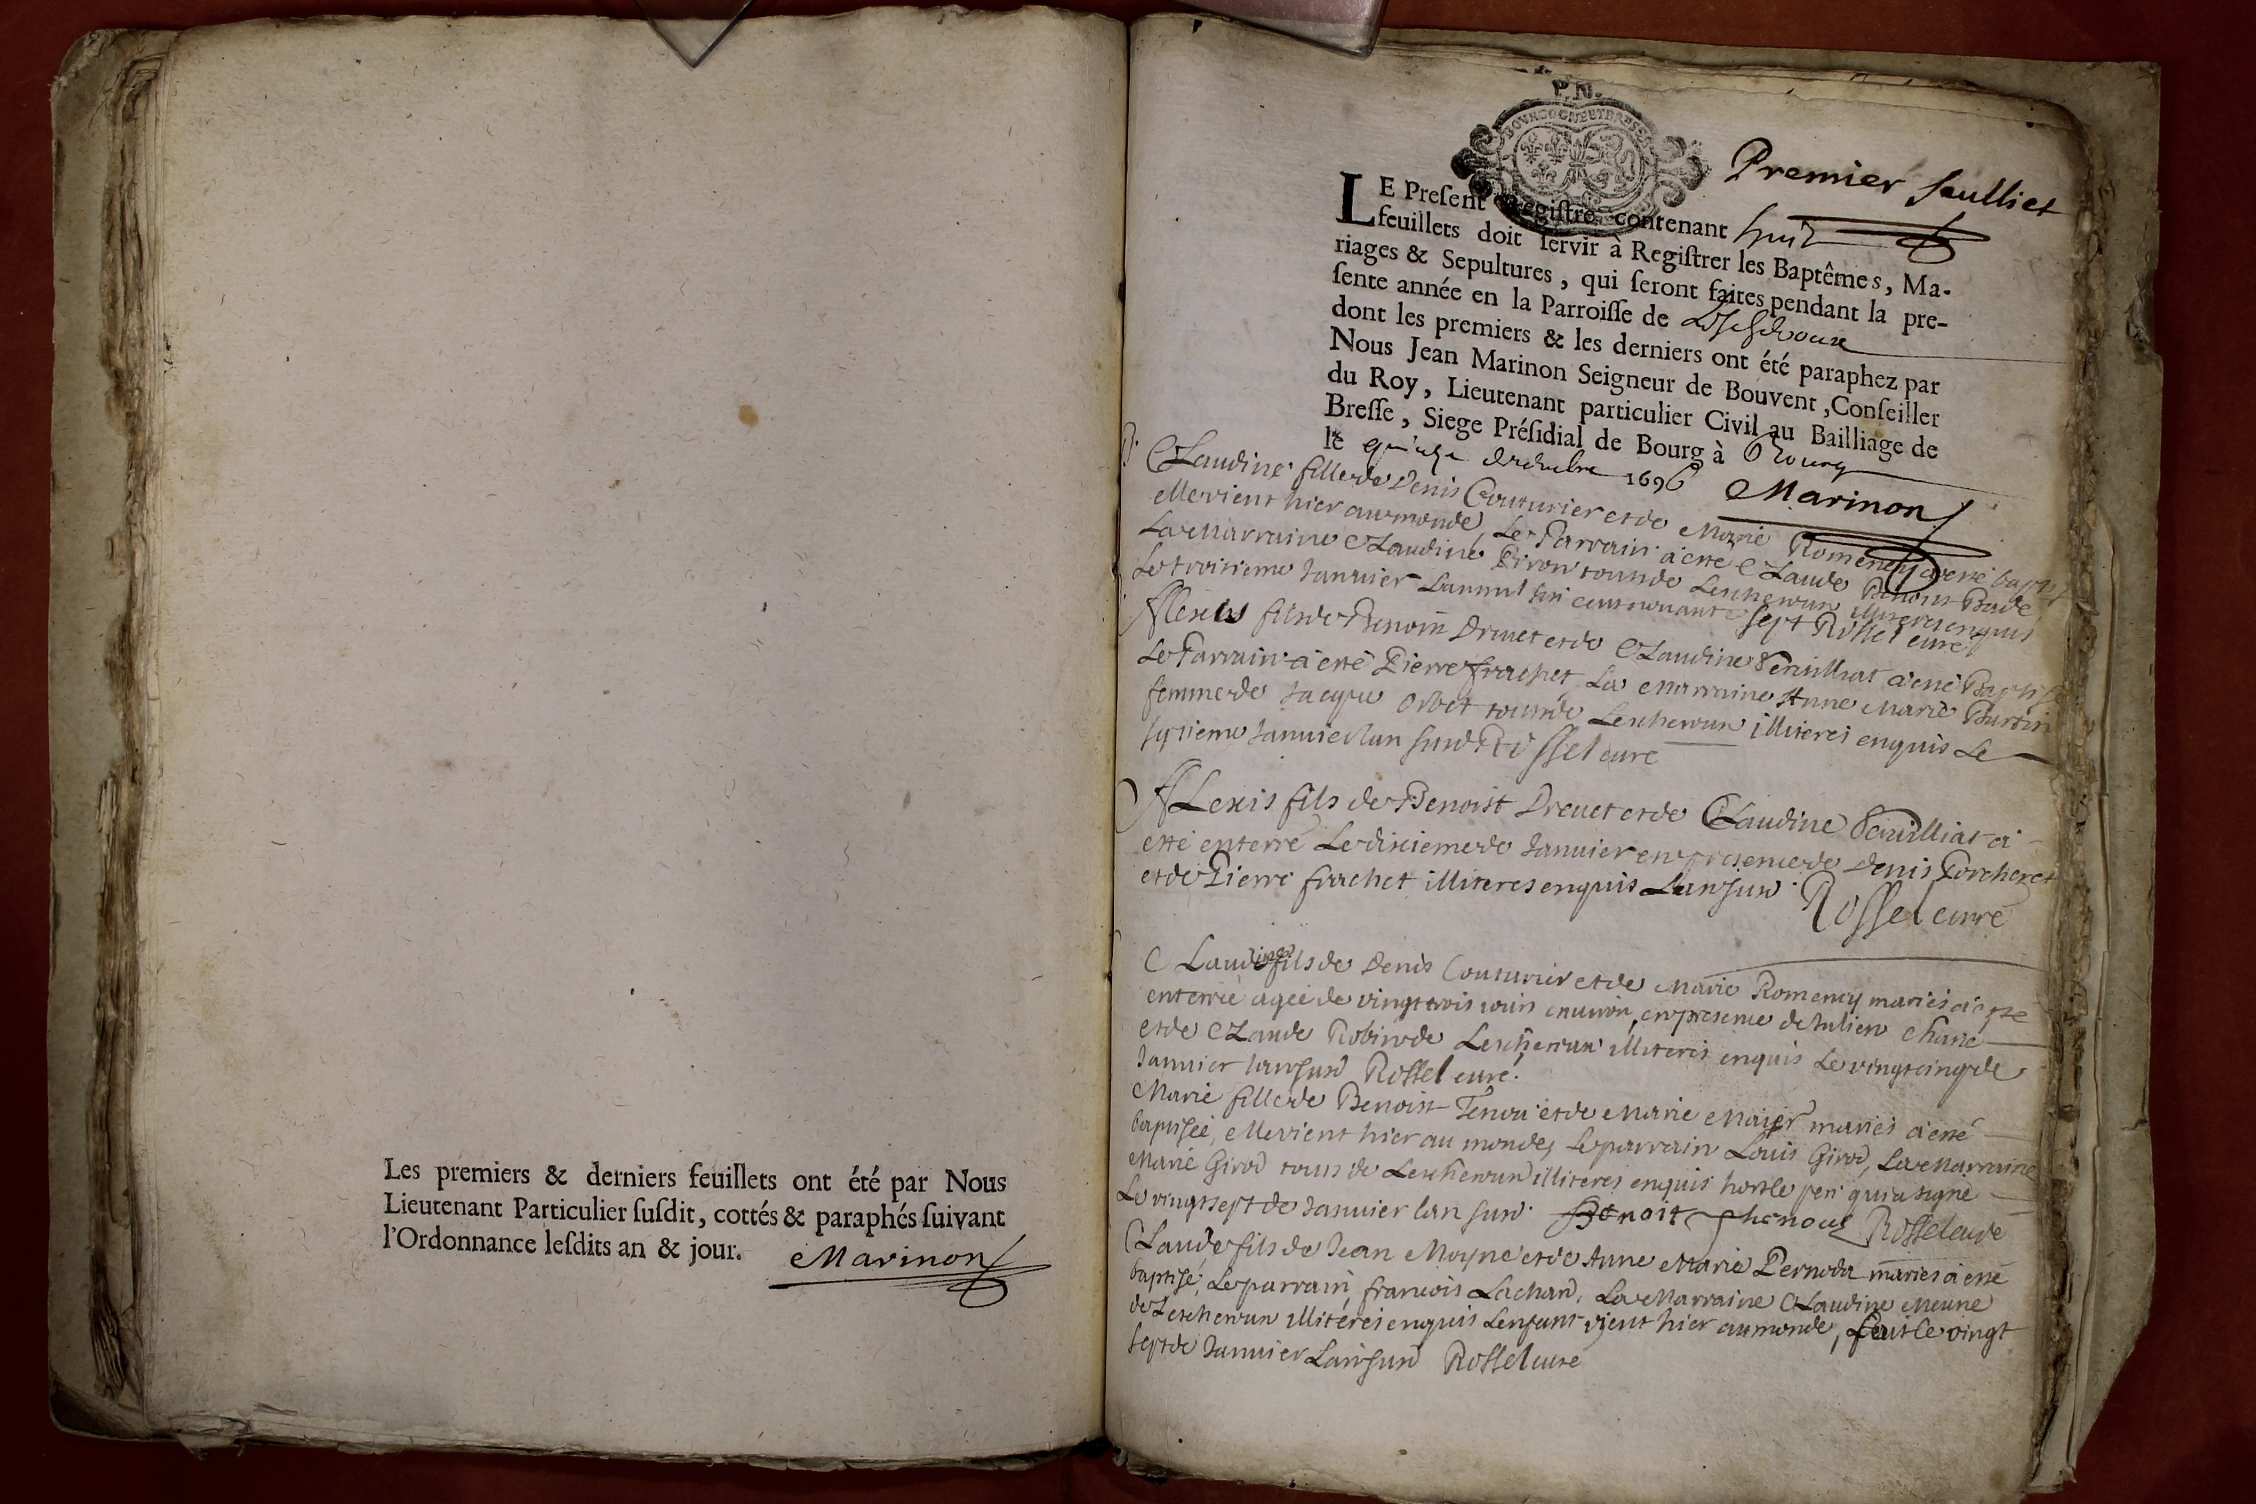 Les premiers & derniers feuillets ont été par Nous
Lieutenant Particulier ſuſdit, cottés & paraphés ſuivant
l'Ordonnance leſdits an & jour. Marinon
P. N.
BOURGOGNE ET BRESSE
Premier feulliet
LE Preſent Regiſtre contenant huit
feuillets doit ſervir à Regiſtrer les Baptêmes, Ma-
riages & Sepultures, qui ſeront faites pendant la pre-
ſente année en la Parroiſſe de
dont les premiers & les derniers ont été paraphez par
Nous Jean Marinon Seigneur de Bouvent, Conſeiller
du Roy, Lieutenant particulier Civil au Bailliage de
Breſſe, Siege Préſidial de Bourg à Bourg
le 1696 Marinon
Claudine fille de Denis Couturier et de Marie Romency a esté
elle vient hier au monde, Le Parrain a esté Claude Benoist
La Marraine Claudine tous de Lescheroux illiteres enquis
Le troisieme Janvier sept Rossel curé
Alexis fils de Benoist Drevet et de Claudine a esté
Le Parrain a esté Pierre frachet La Marraine Anne Marie Burtin
femme de Jacque tous de Lescheroux illiteres enquis Le
Janvier lan susd Rossel curé
Alexis fils de Benoist Drevet et de Claudine a
esté enterré Le dixieme de Janvier en presence de Denis Porcheret
et de Pierre frachet illiteres enquis Lan susd Rossel curé
Claudine fils de Denis Couturier et de Marie Romency mariés a esté
enterrée agée de vingt trois iours environ, en presence de Julien
et de Claude Robin de Lescheroux illiteres enquis Le vingt cinq de
Janvier lan susd Rossel curé.
Marie fille de Benoist et de Marie mariés a esté
baptisée, elle vient hier au monde, Le parrain Louis Girod, La Marraine
Marie Girod tous de Lescheroux illiteres enquis hors le per qui a signé
Le vingt sept de Janvier lan susd. Benoit Rossel curé
Claude fils de Jean Moyne et de Anne Marie mariés a esté
baptisé, Le parrain, francois La Marraine Claudine Meune
de Lescheroux illiteres enquis Lenfant vient hier au monde, fait le vingt
sept de Janvier Lan susd Rossel curé